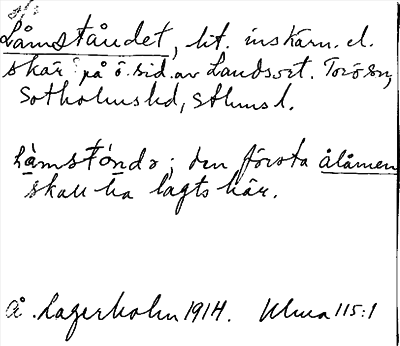 Låmståndet, lit. inskärn. el.
skär på ö. sid. av Landsort. Torö sn,
Sotholms hd, Sthms l.
Làmstóndə; den första ålåmen
skall ha lagts här.
Å. Lagerholm 1914. Ulma 115:1